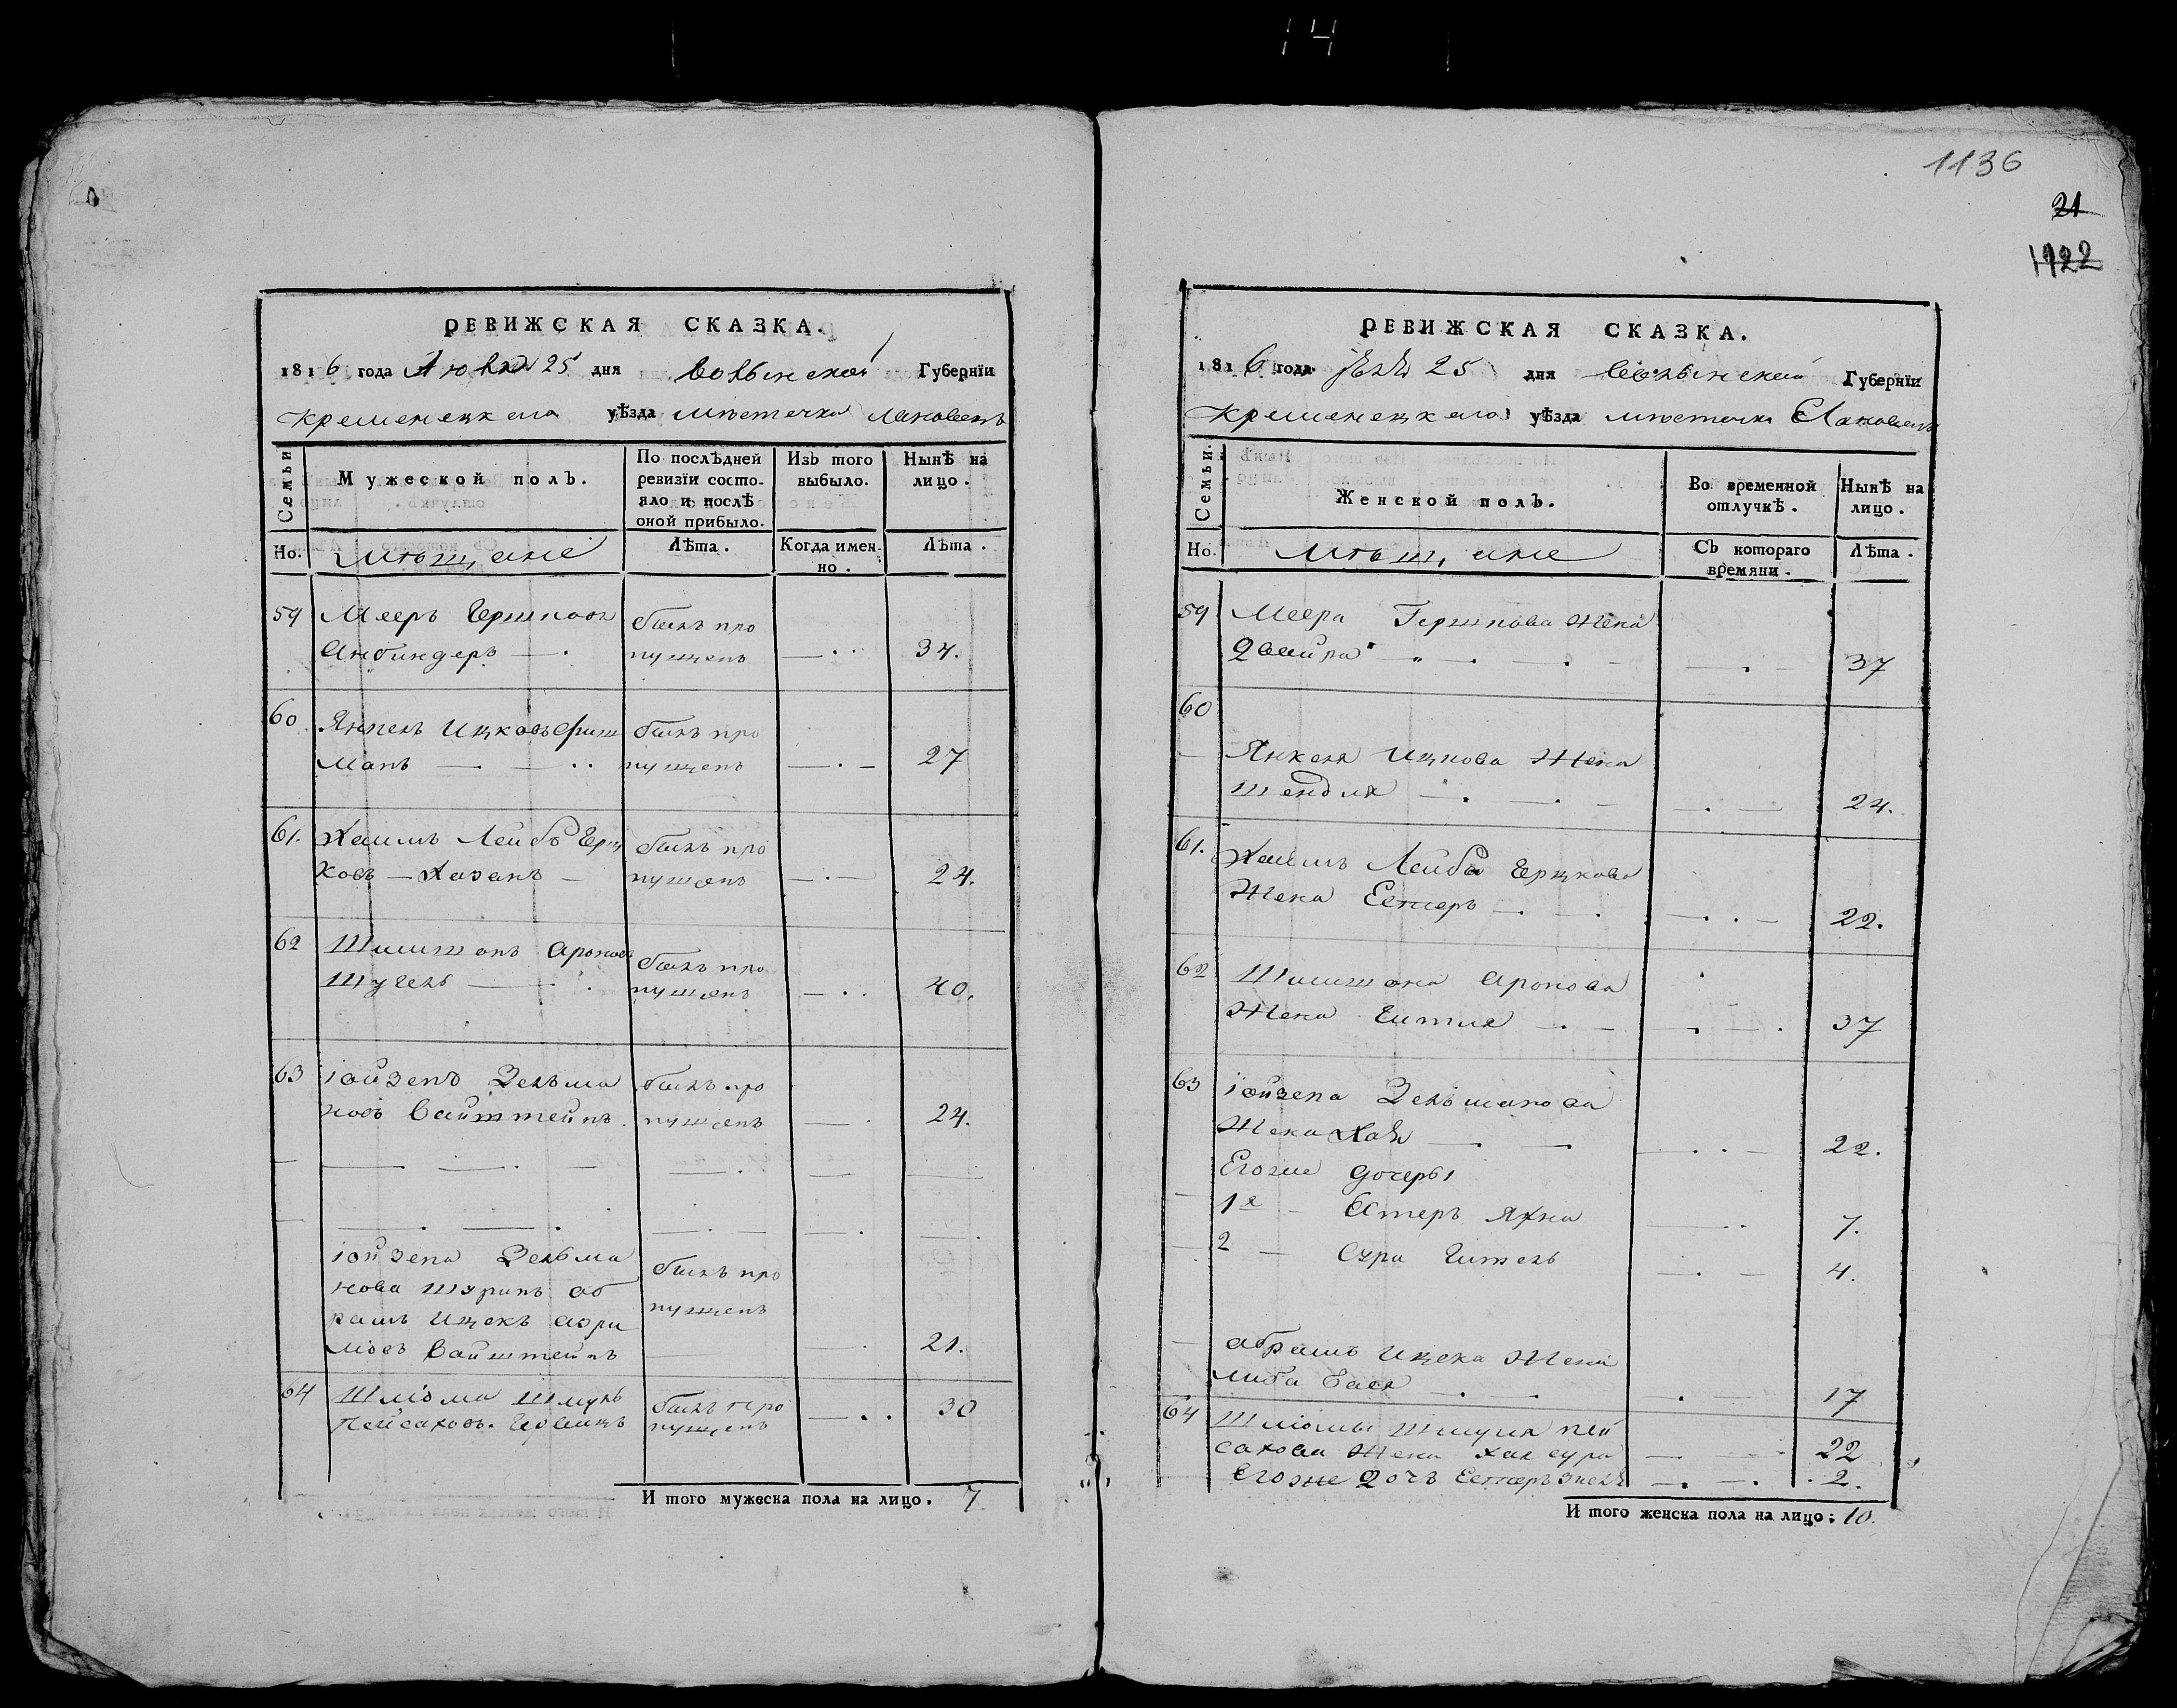 14
1136
21
1922
РЕВИЖСКАЯ СКАЗКА.
1816 года Июля 25 дня Волынской Губернїи
Кременецкаго уѣзда мѣстечка Лановецъ
Семьи
Мужеской полъ.
По послѣдней ревизїи состояло и послѣ оной прибыло.
Изъ того выбыло.
Нынѣ на лицо.
Но.
Мѣщане
Лѣта.
Когда именно.
Лѣта.
59 Мееръ Гершковъ былъ про
Анбиндеръ — пущенъ — 34.
60 Янкель Ицковъ Фиш былъ про
манъ — пущенъ — 27
61. Хаимъ Лейбъ Герц былъ про
ковъ — Хазанъ — пущенъ — 24.
62 Шимшонъ Ароновъ былъ про
Шугель — пущенъ — 40.
63 Іойзепъ Зельма былъ про
новъ Вайштейнъ. пущенъ — 24.
Іойзепа Зельма былъ про
нова шуринъ Аб пущенъ
рамъ Ицекъ
Вайштейнъ — 21.
64 Шліома Шмуль былъ про
Пейсаховъ. пущенъ — 30
И того мужеска пола на лицо. 7
РЕВИЖСКАЯ СКАЗКА.
1816 года Июля 25 дня Волынской Губернїи
Кременецкаго уѣзда мѣстечка Лановецъ
Семьи.
Женской полъ.
Во временной отлучкѣ.
Нынѣ на лицо.
Но.
Мѣщане
Съ котораго времяни.
Лѣта.
59 Меера Гершкова Жена
Двойра — 37
60
Янкеля Ицкова Жена
Шендля — 24.
61. Хаимъ Лейба Герцкова
Жена Естеръ — 22.
62 Шимшона Аронова
Жена Гитля — 37
63 Іойзепа Зельманова
Жена Хая — 22.
Егоже дочеры
1я — Естеръ Яхна — 7.
2 — Сура Гитель — 4.
Абрамъ Ицека Жена
Либа Бася — 17
64 Шліомы Шмуля Пей
сахова Жена Хая Сура — 22
Егоже дочь Естеръ — 2.
И того женска пола на лицо: 10.